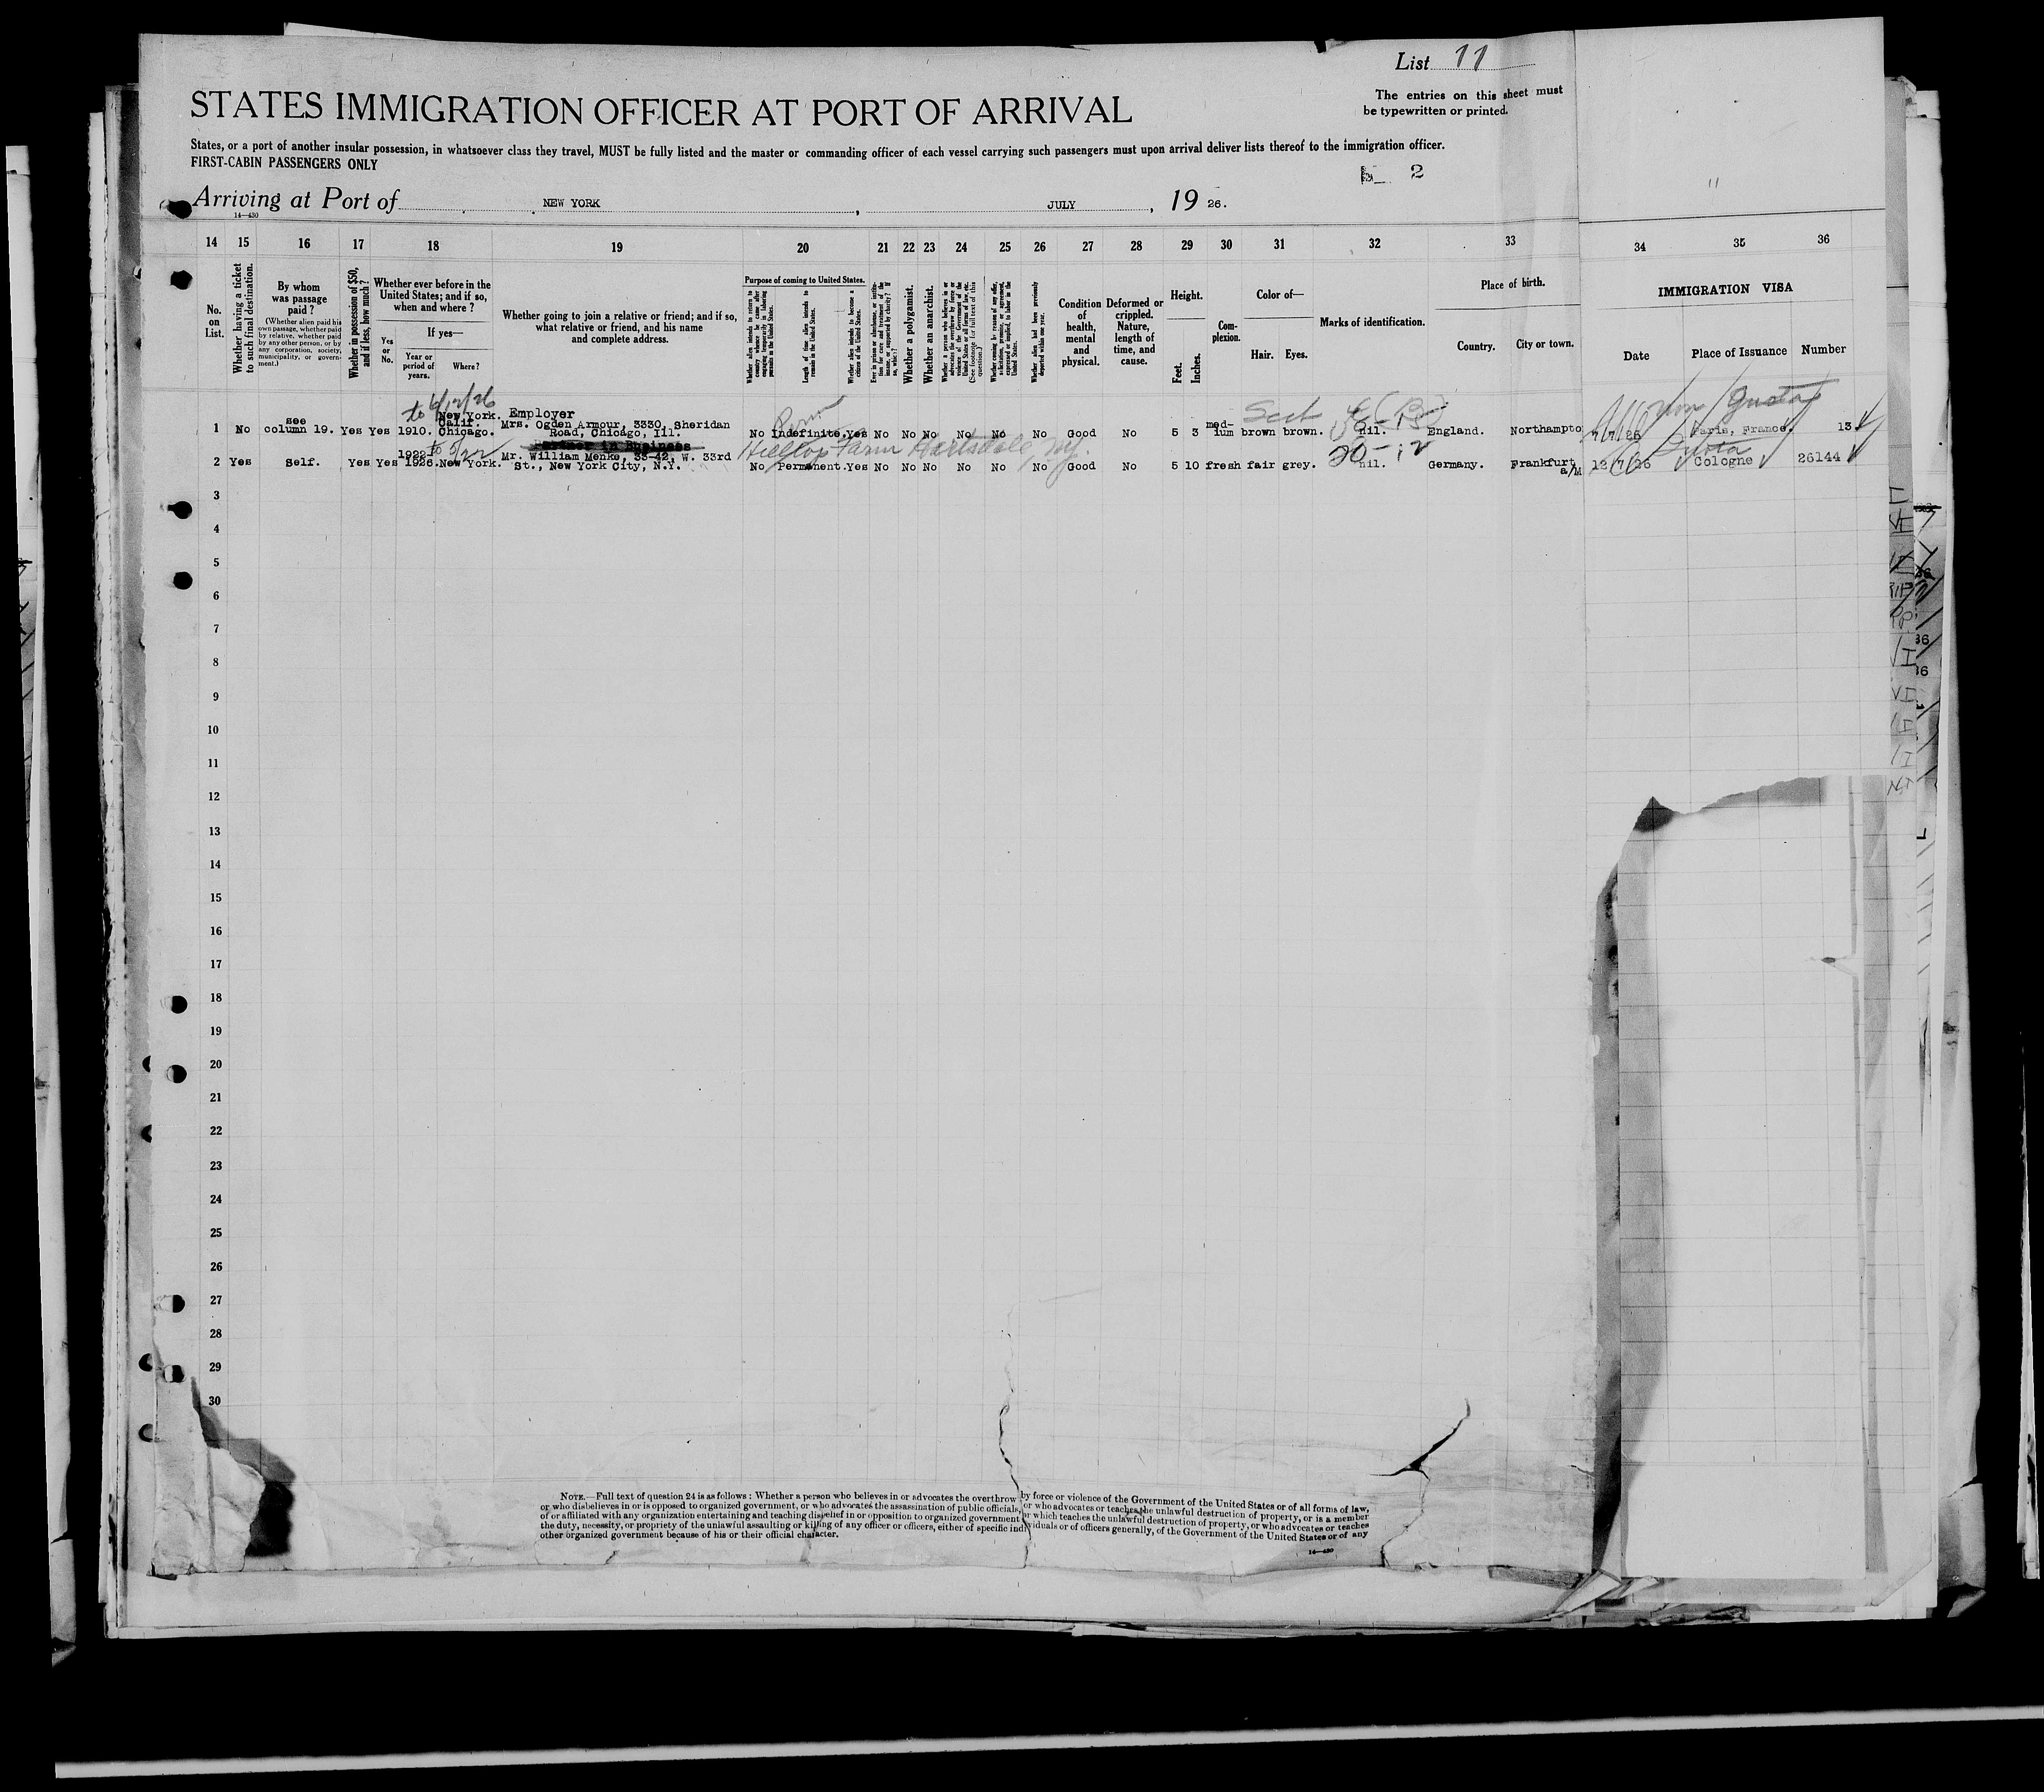 List 11
The entries on this sheet must
be typewritten or printed.
STATES IMMIGRATION OFFICER AT PORT OF ARRIVAL
States, or a port of another insular possession, in whatsoever class they travel, MUST be fully listed and the master or commanding officer of each vessel carrying such passengers must upon arrival deliver lists thereof to the immigration officer.
FIRST-CABIN PASSENGERS ONLY
2
11
Arriving at Port of NEW YORK, JULY, 19 26.
14—430
14 15 16 17 18 19 20 21 22 23 24 25 26 27 28 29 30 31 32 33 34 35 36
No. on List.
Whether having a ticket to such final destination.
By whom was passage paid?
(Whether alien paid his own passage, whether paid by relative, whether paid by any other person, or by any corporation, society, municipality, or government.)
Whether in possession of $50, and if less, how much?
Whether ever before in the United States; and if so, when and where?
If yes—
Yes or No.
Year or period of years.
Where?
Whether going to join a relative or friend; and if so, what relative or friend, and his name and complete address.
Purpose of coming to United States.
Whether alien intends to return to country whence he came after engaging temporarily in laboring pursuits in the United States.
Length of time alien intends to remain in the United States.
Whether alien intends to become a citizen of the United States.
Ever in prison or almshouse, or institution for care and treatment of the insane, or supported by charity? If so, which?
Whether a polygamist.
Whether an anarchist.
Whether a person who believes in or advocates the overthrow by force or violence of the Government of the United States or all forms of law, etc. (See footnote for full text of this question.)
Whether coming by reason of any offer, solicitation, promise, or agreement, expressed or implied, to labor in the United States.
Whether alien had been previously deported within one year.
Condition of health, mental and physical.
Deformed or crippled. Nature, length of time, and cause.
Height.
Feet. Inches.
Complexion.
Color of—
Hair. Eyes.
Marks of identification.
Place of birth.
Country. City or town.
IMMIGRATION VISA
Date Place of Issuance Number
to 6/12/26
New York. Employer
see Calif. Mrs. Ogden Armour, 3330, Sheridan
1 No column 19. Yes Yes 1910. Chicago. Road, Chicago, Ill. No Indefinite. Yes No No No No No No Good No 5 3 med-ium brown brown. nil. England. Northampto 7/7/26 Paris, France. 13
Hilltop Farm Hartsdale, NY.
20-12
1922 to 5/22 Mr. William Menke, 33-42, W. 33rd
2 Yes Self. Yes Yes 1926. New York. St., New York City, N.Y. No Permanent. Yes No No No No No No Good No 5 10 fresh fair grey. nil. Germany. Frankfurt a/M 12/7/26 Cologne 26144
3
4
5
6
7
8
9
10
11
12
13
14
15
16
17
18
19
20
21
22
23
24
25
26
27
28
29
30
NOTE.—Full text of question 24 is as follows: Whether a person who believes in or advocates the overthrow by force or violence of the Government of the United States or of all forms of law,
or who disbelieves in or is opposed to organized government, or who advocates the assassination of public officials, or who advocates or teaches the unlawful destruction of property, or is a member
of or affiliated with any organization entertaining and teaching disbelief in or opposition to organized government or which teaches the unlawful destruction of property, or who advocates or teaches
the duty, necessity, or propriety of the unlawful assaulting or killing of any officer or officers, either of specific individuals or of officers generally, of the Government of the United States or of any
other organized government because of his or their official character.
14—430